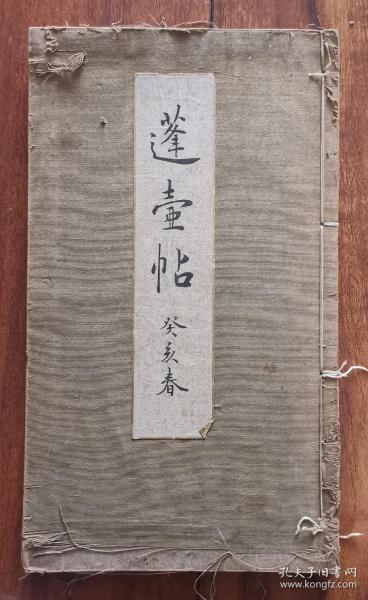 蓬壷帖
癸亥春
孔夫子旧书网
www.kongfz.com